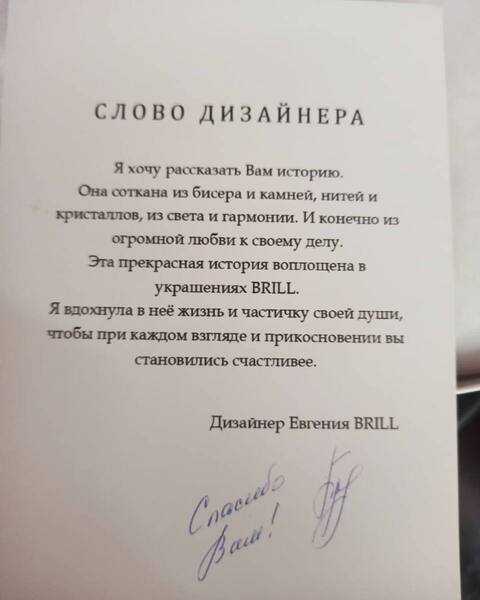 СЛОВО ДИЗАЙНЕРА
Я хочу рассказать Вам историю.
Она соткана из бисера и камней, нитей и
кристаллов, из света и гармонии. И конечно из
огромной любви к своему делу.
Эта прекрасная история воплощена в
украшениях BRILL.
Я вдохнула в неё жизнь и частичку своей души,
чтобы при каждом взгляде и прикосновении вы
становились счастливее.
Дизайнер Евгения BRILL
Спасибо
Вам!